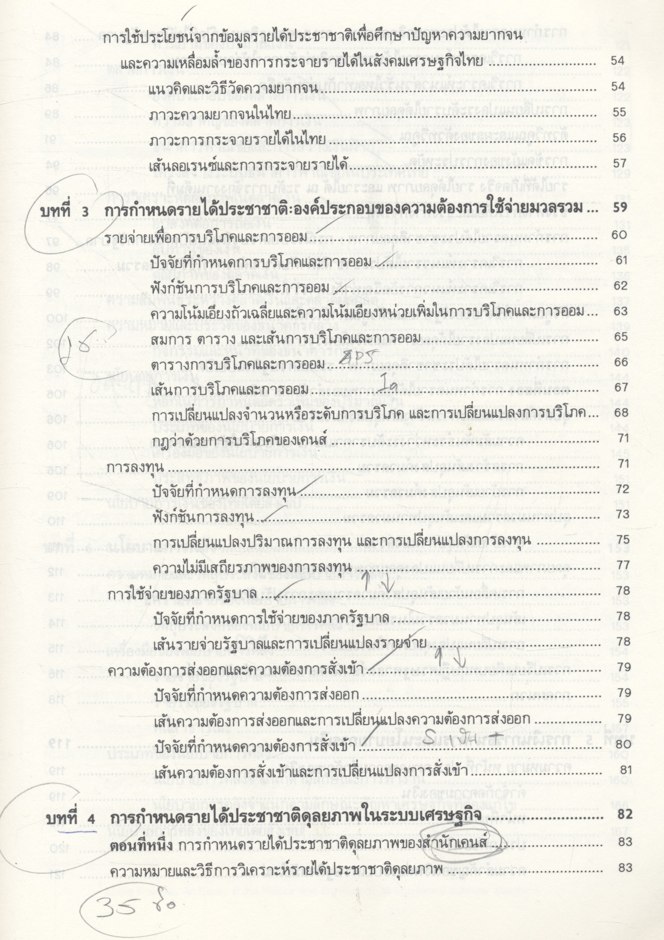 การใช้ประโยชน์จากข้อมูลรายได้ประชาชาติเพื่อศึกษาปัญหาความยากจน
และความเหลื่อมล้ำของการกระจายรายได้ในสังคมเศรษฐกิจไทย ..... 54
แนวคิดและวิธีวัดความยากจน ..... 54
ภาวะความยากจนในไทย ..... 55
ภาวะการกระจายรายได้ในไทย ..... 56
เส้นลอเรนซ์และการกระจายรายได้ ..... 57
บทที่ 3 การกำหนดรายได้ประชาชาติ:องค์ประกอบของความต้องการใช้จ่ายมวลรวม ... 59
รายจ่ายเพื่อการบริโภคและการออม ..... 60
ปัจจัยที่กำหนดการบริโภคและการออม ..... 61
ฟังก์ชันการบริโภคและการออม ..... 62
ความโน้มเอียงถัวเฉลี่ยและความโน้มเอียงหน่วยเพิ่มในการบริโภคและการออม ... 63
สมการ ตาราง และเส้นการบริโภคและการออม ..... 65
ตารางการบริโภคและการออม ..... APS 66
เส้นการบริโภคและการออม ..... Ia 67
การเปลี่ยนแปลงจำนวนหรือระดับการบริโภค และการเปลี่ยนแปลงการบริโภค ... 68
กฎว่าด้วยการบริโภคของเคนส์ ..... 71
การลงทุน ..... 71
ปัจจัยที่กำหนดการลงทุน ..... 72
ฟังก์ชันการลงทุน ..... 73
การเปลี่ยนแปลงปริมาณการลงทุน และการเปลี่ยนแปลงการลงทุน ..... 75
ความไม่มีเสถียรภาพของการลงทุน ..... 77
การใช้จ่ายของภาครัฐบาล ..... ↑ ↓ 78
ปัจจัยที่กำหนดการใช้จ่ายของภาครัฐบาล ..... 78
เส้นรายจ่ายรัฐบาลและการเปลี่ยนแปลงรายจ่าย ..... 78
ความต้องการส่งออกและความต้องการสั่งเข้า ..... ↑ ↓ 79
ปัจจัยที่กำหนดความต้องการส่งออก ..... 79
เส้นความต้องการส่งออกและการเปลี่ยนแปลงความต้องการส่งออก ..... 79
ปัจจัยที่กำหนดความต้องการสั่งเข้า ..... 80
เส้นความต้องการสั่งเข้าและการเปลี่ยนแปลงการสั่งเข้า ..... 81
บทที่ 4 การกำหนดรายได้ประชาชาติดุลยภาพในระบบเศรษฐกิจ ..... 82
ตอนที่หนึ่ง การกำหนดรายได้ประชาชาติดุลยภาพของสำนักเคนส์ ..... 83
ความหมายและวิธีการวิเคราะห์รายได้ประชาชาติดุลยภาพ ..... 83
35 ข้อ